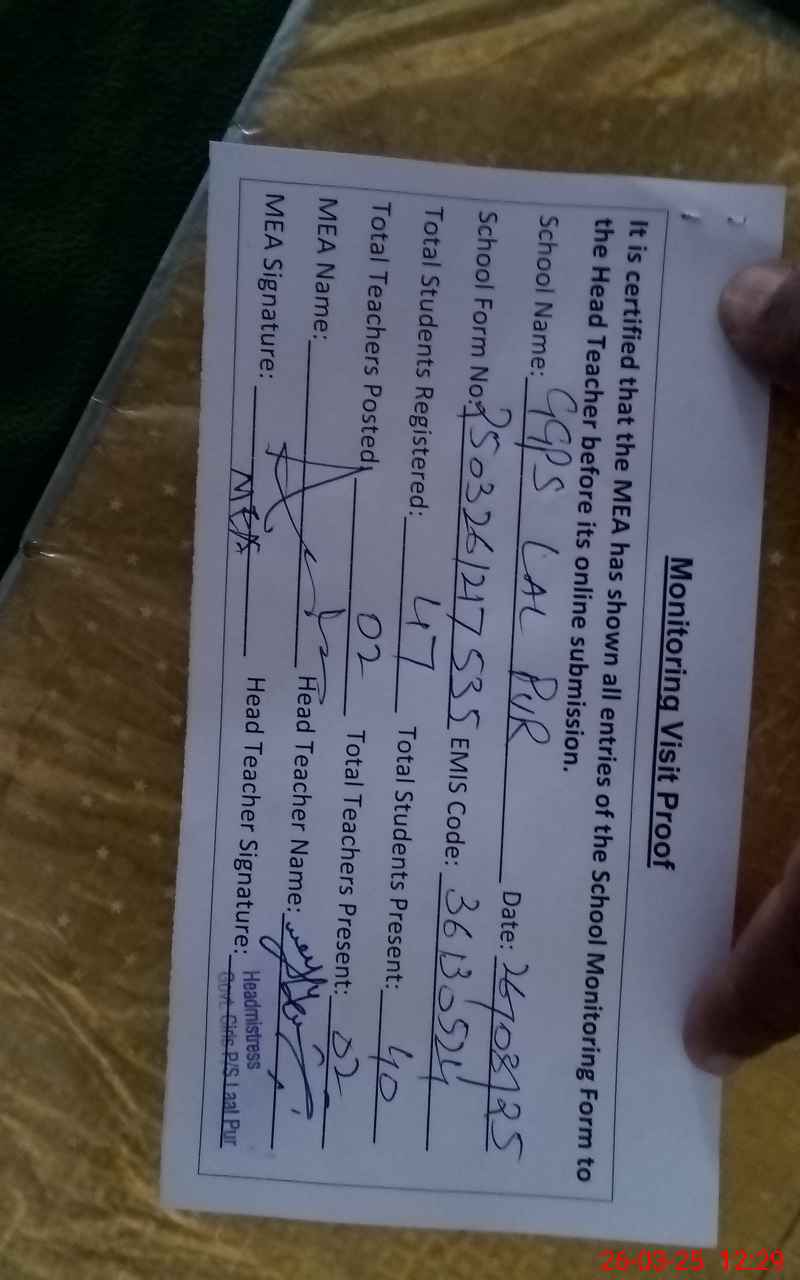 Monitoring Visit Proof
It is certified that the MEA has shown all entries of the School Monitoring Form to
the Head Teacher before its online submission.
School Name: GGPS LAL PUR Date: 26/03/25
School Form No: 2503261217535 EMIS Code: 36130524
Total Students Registered: 47 Total Students Present: 40
Total Teachers Posted: 02 Total Teachers Present: 02
MEA Name: Head Teacher Name:
MEA Signature: MEA Head Teacher Signature:
Headmistress
Govt. Girls P/S Laal Pur
26-03-25 12:29